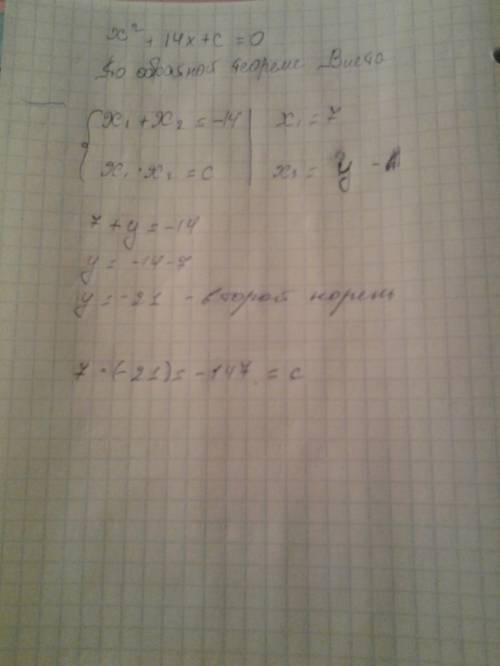 x² + 14x + c = 0
По обратной теореме Виета
{ x₁ + x₂ = -14 | x₁ = 7
x₁ · x₂ = c | x₂ = y -
7 + y = -14
y = -14 - 7
y = -21 - второй корень
7 · (-21) = -147 = c